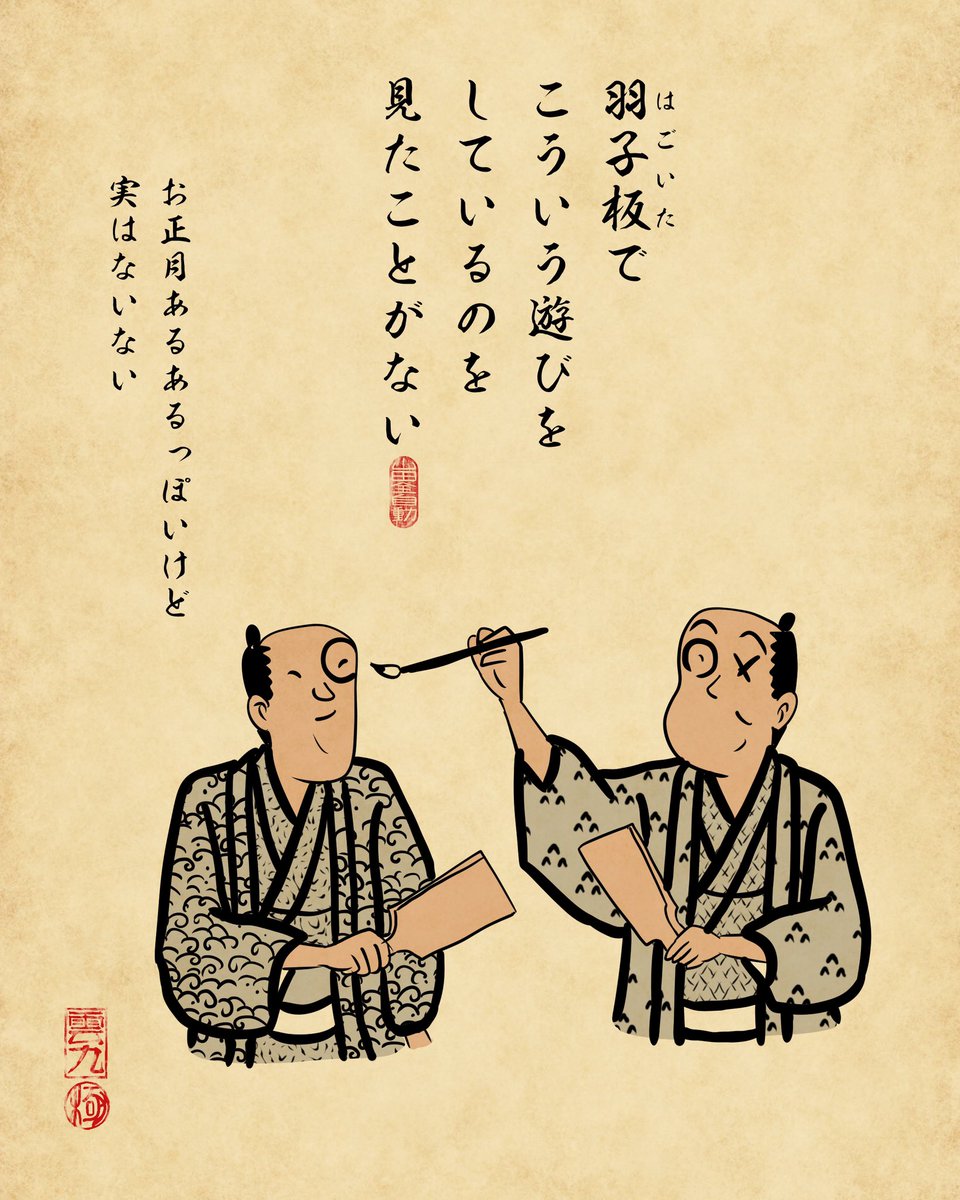 羽子板で
はごいた
こういう遊びを
しているのを
見たことがない
お正月あるあるっぽいけど
実はないない